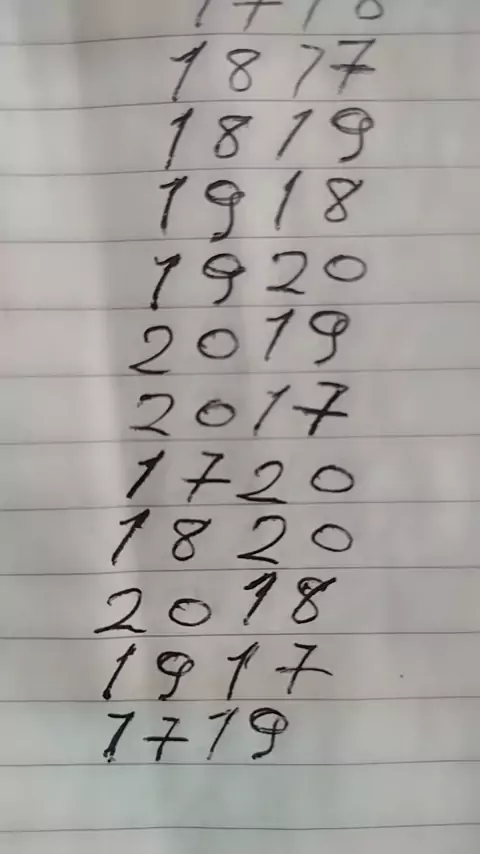 1718
1817
1819
1918
1920
2019
2017
1720
1820
2018
1917
1719